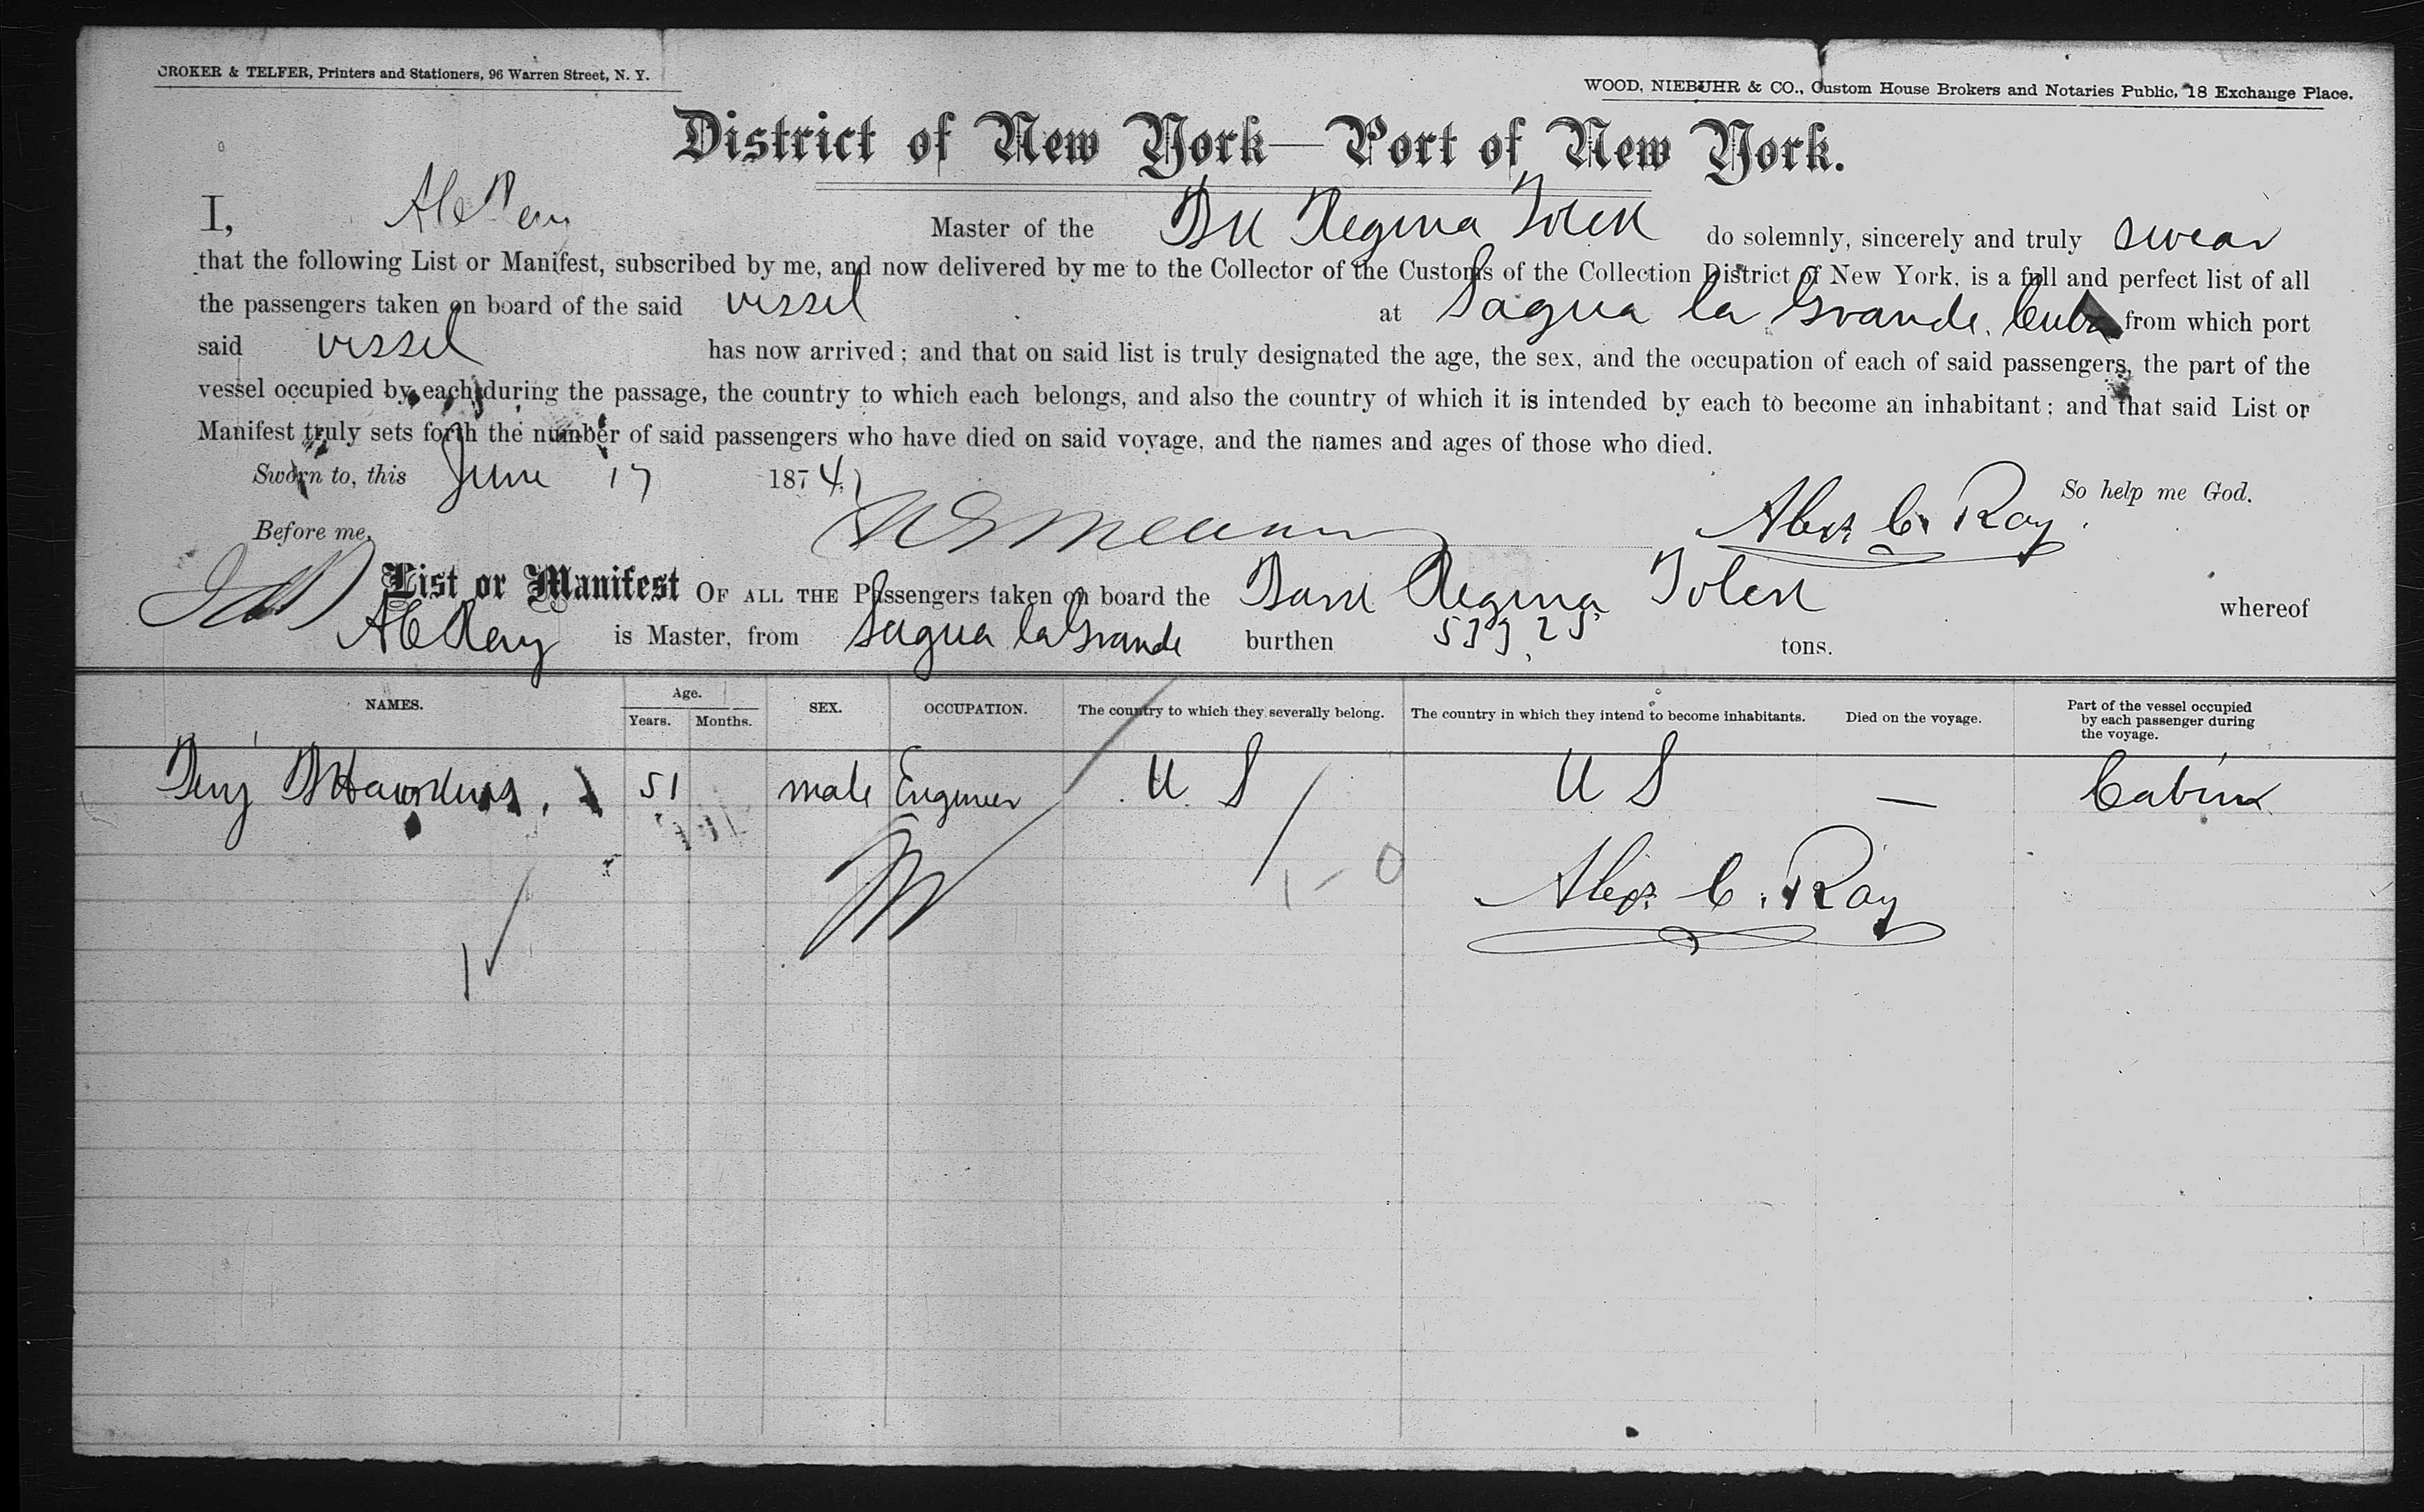 CROKER & TELFER, Printers and Stationers, 96 Warren Street, N. Y.
WOOD, NIEBUHR & CO., Custom House Brokers and Notaries Public, 18 Exchange Place.
District of New York—Port of New York.
I, A C Ray Master of the Bk Regina Tolck do solemnly, sincerely and truly swear
that the following List or Manifest, subscribed by me, and now delivered by me to the Collector of the Customs of the Collection District of New York, is a full and perfect list of all
the passengers taken on board of the said vessel at Sagua la Grande, Cuba from which port
said vessel has now arrived; and that on said list is truly designated the age, the sex, and the occupation of each of said passengers, the part of the
vessel occupied by each during the passage, the country to which each belongs, and also the country of which it is intended by each to become an inhabitant; and that said List or
Manifest truly sets forth the number of said passengers who have died on said voyage, and the names and ages of those who died.
Sworn to, this June 17 1874, So help me God.
Before me, Alex. C. Ray
List or Manifest OF ALL THE Passengers taken on board the Bark Regina Tolck whereof
A C Ray is Master, from Sagua la Grande burthen 533,25 tons.
NAMES. Age. Years. Months. SEX. OCCUPATION. The country to which they severally belong. The country in which they intend to become inhabitants. Died on the voyage. Part of the vessel occupied by each passenger during the voyage.
Benj 51 male Engineer U. S U S — Cabin
1 - 0
Alex. C. Ray
1